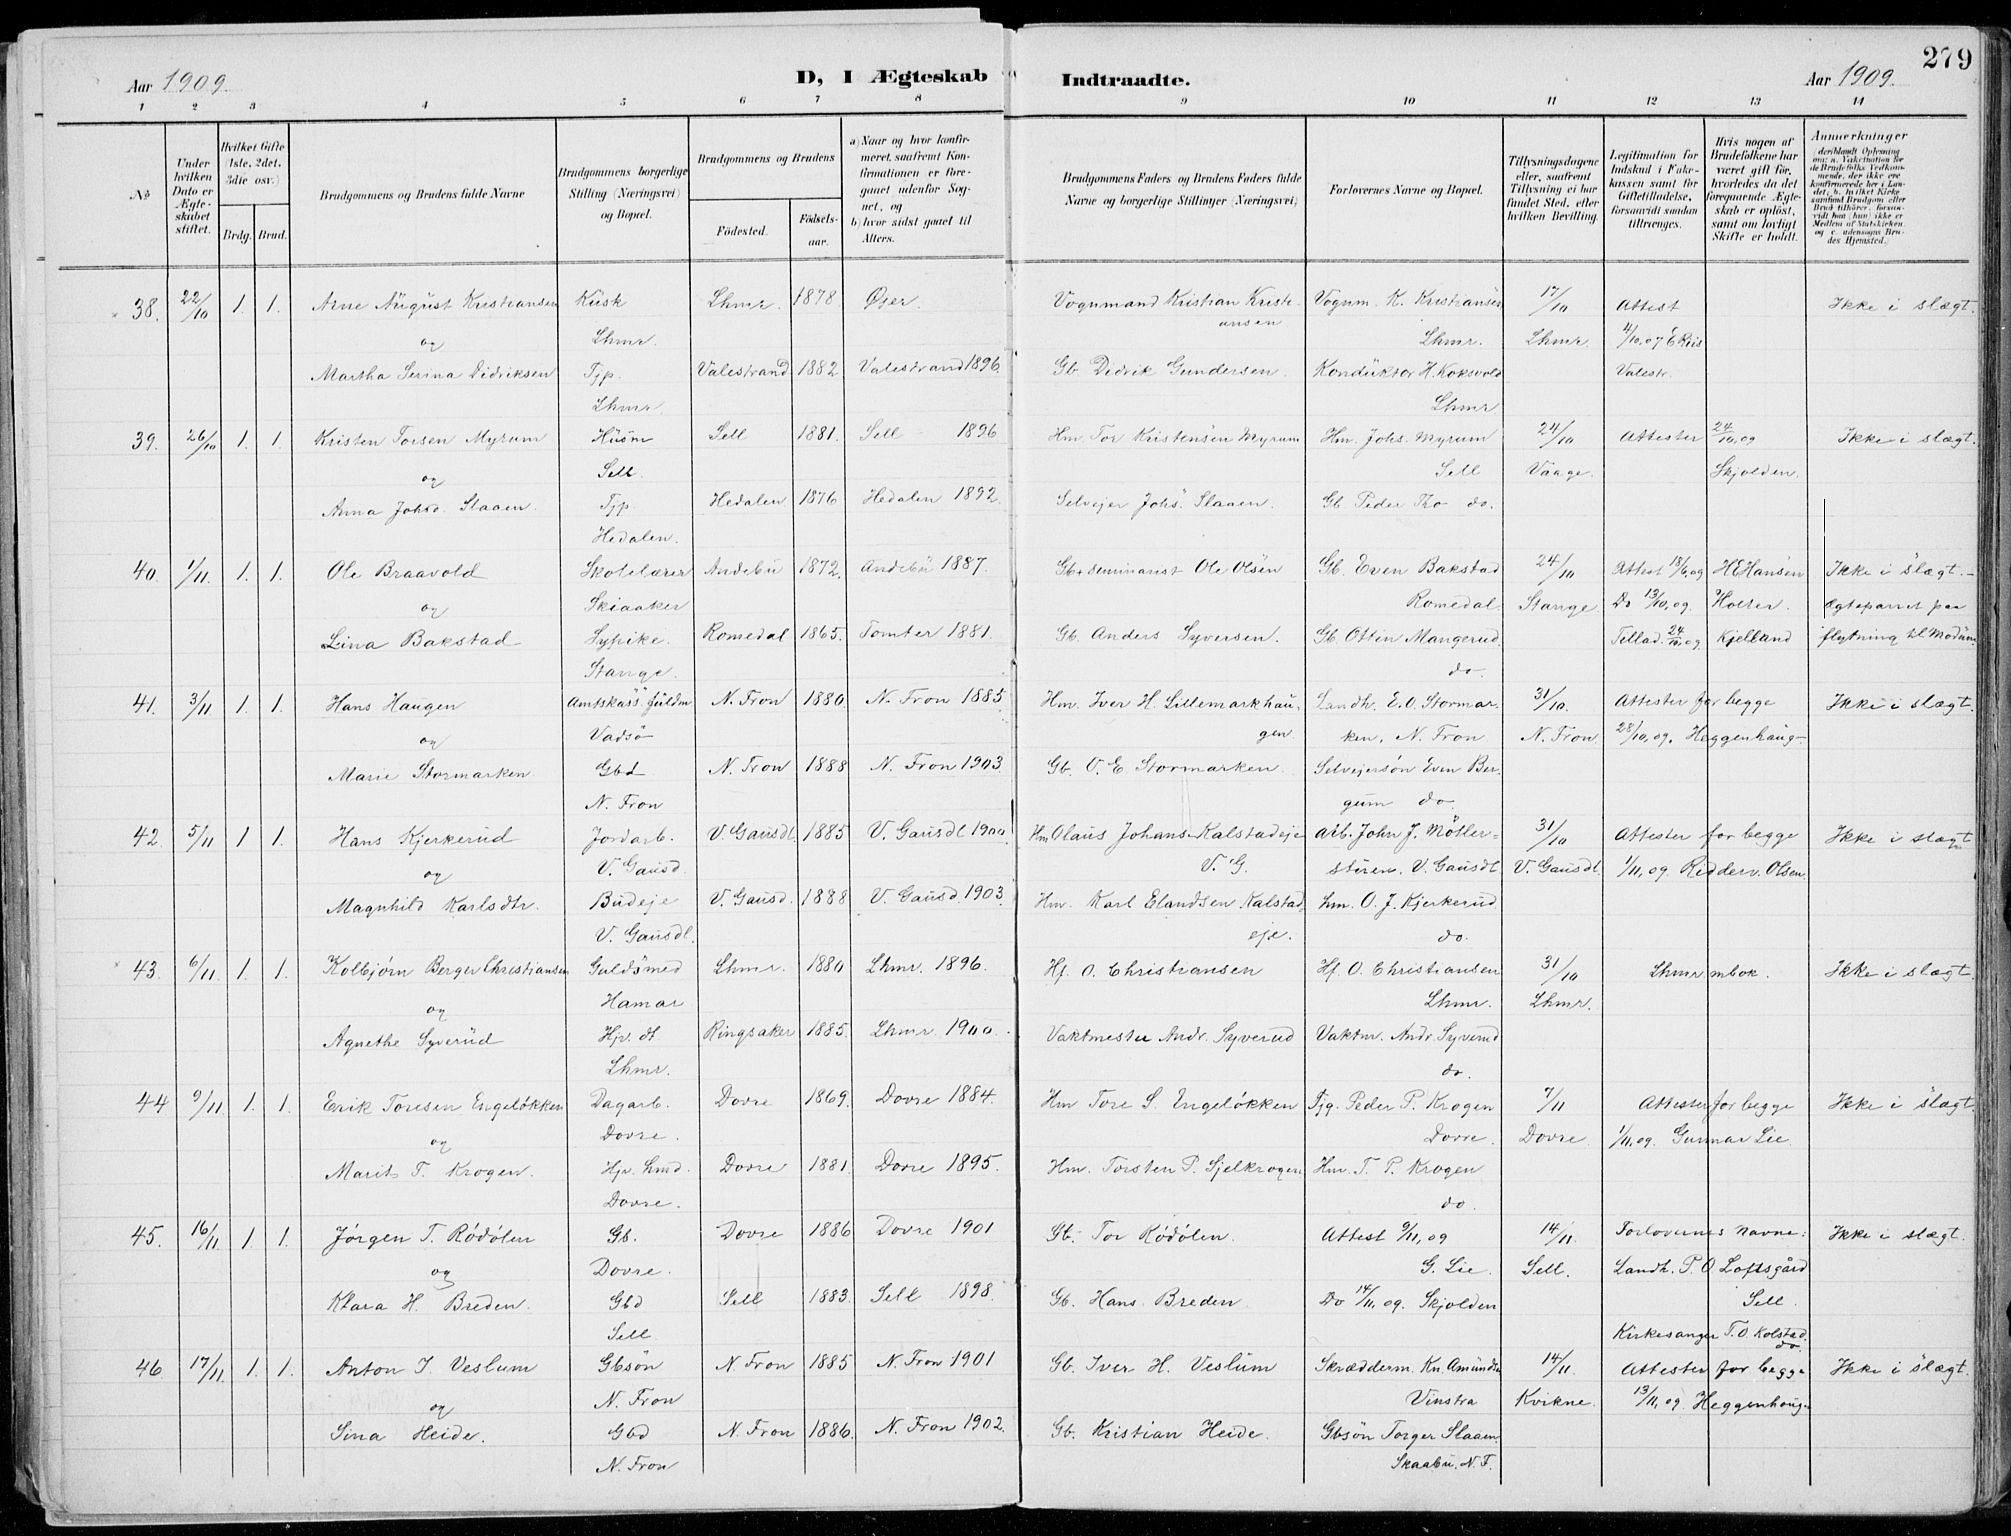 279
Aar 1909.
D, I Ægteskab
Indtraadte.
Aar 1909.
1 2 3 4 5 6 7 8 9 10 11 12 13 14
No
Under hvilken Dato er Ægteskabet stiftet.
Hvilket Gifte (1ste, 2det, 3die osv.)
Brdg. Brud.
Brudgommens og Brudens fulde Navne
Brudgommens borgerlige Stilling (Næringsvei) og Bopæl.
Brudgommens og Brudens
Födested. Födsels-aar.
a) Naar og hvor konfirmeret, saafremt Konfirmationen er foregaaet udenfor Sognet, og b) hvor sidst gaaet til Alters.
Brudgommens Faders og Brudens Faders fulde Navne og borgerlige Stillinger (Næringsvei)
Forlovernes Navne og Bopæl.
Tillysningsdagene eller, saafremt Tillysning ei har fundet Sted, efter hvilken Bevilling.
Legitimation for Indskud i Enkekassen samt for Giftetilladelse, forsaavidt saadan tiltrænges.
Hvis nogen af Brudefolkene har været gift før, hvorledes da det foregaaende Ægteskab er opløst, samt om lovligt Skifte er holdt.
Anmerkninger
38. 22/10 1. 1. Arne August Kristiansen Kusk Lhmr. 1878. Øier. Vognmand Kristian Kristi- Vognm. K. Kristiansen 17/10 Attest Ikke i slægt.
og Lhmr. ansen Lhmr. Lhmr. 4/10,09
Martha Serina Didriksen Tjp. Valestrand 1882 Valestrand 1896. Gb. Didrik Gundersen. Konduktør H. Koksvold Valestr.
Lhmr. Lhmr
39. 26/10 1. 1. Kristen Torsen Myrum Husm Sell 1881. Sell 1896 Hm. Tor Kristensen Myrum Hm. Johs. Myrum 24/10 Attester 24/10,09 Ikke i slægt.
og Sell. Sell Vaage. Skjolden.
Anna Johsd. Slaaen. Tjp. Hedalen 1876 Hedalen 1892. Selvejer Johs. Slaaen. Gb. Peder Tho do.
Hedalen.
40. 1/11. 1. 1. Ole Braavold Skolelærer Andebu 1872. Andebu 1887. Gb + seminarist Ole Olsen Gb. Even Bakstad 24/10 Attest 18/6,09 Hansen Ikke i slægt.-
og Skiaaker Romedal. Stange. Do 13/10,09. Holter. Ægteparret paa
Lina Bakstad Sypike. Romedal 1865. Tomter 1881. Gb. Anders Syversen. Gb. Ottin Mangerud. Tillad. 24/10,09 Kjelland flytning til Modum.
Stange. do.
41. 3/11 1. 1. Hans Haugen Amtskass. fuldm N. Fron 1880. N. Fron 1885 Hm. Iver H. Lillemarkhau- Landh. E. O. Stormar- 31/10. Attester for begge Ikke i slægt.
og Vadsø gen. ken, N. Fron N. Fron. 28/10,09. Heggenhaug-
Marie Stormarken Gbd N. Fron 1888 N. Fron 1903. Gb. O. E Stormarken. Selvejersøn Even Ber-
N. Fron gum do.
42. 5/11 1 1. Hans Kjerkerud Jordarb. V. Gausdl. 1885 V. Gausdl 1900. Hm Olaus Johans. Kalstadeje arb. John J. Møller- 31/10 Attester for begge Ikke i slægt
og V. Gausd. V. G. stuen. V. Gausdl V. Gausdl. 1/11,09. Ridderv. Olsen
Magnhild Karlsdtr. Budeje V. Gausd. 1888 V. Gausd. 1903. Hm. Karl Elandsen Kalstad hm. O. J. Kjerkerud
V. Gausdl. eje. do.
43. 6/11. 1. 1. Kolbjørn Berger Christiansen Guldsmed Lhmr. 1880 Lhmr. 1896. Hf. O. Christiansen Hf. O. Christiansen 31/10 Lhmr mbok. Ikke i slægt.
og Hamar Lhmr. Lhmr.
Agnethe Syverud Hjv. dt Ringsaker 1885. Lhmr. 1900. Vaktmester Andr. Syverud Vaktm. Andr. Syverud
Lhmr. do.
44 9/11 1. 1. Erik Toresen Engeløkken Dagarb. Dovre 1869. Dovre 1884. Hm Tore S. Engeløkken Tjg. Peder P. Krogen 7/11 Attester for begge Ikke i slægt.
og Dovre. Dovre. Dovre 1/11,09. Gunnar Lie.
Marit T. Krogen. Hjv. hmd. Dovre 1881 Dovre 1895. Hm. Torsten P. Sjelkrogen. Hm. T. P. Krogen
Dovre. do.
45. 16/11 1. 1. Jørgen T. Rødølen Gb. Dovre 1886 Dovre 1901 Gb. Tor Rødølen. Attest 9/11,09 14/11. Forlovernes navne: Ikke i slægt.
og Dovre. G. Lie. Sell. Landh. P. O Loftsgård
Klara H. Breden. Gbd Sell 1883. Sell 1898. Gb. Hans Breden. Do 14/11,09. Skjolden Sell.
Sell. Kirkesanger T. O. Kolstad. do
46. 17/11. 1. 1. Anton I. Veslum Gbsøn N. Fron 1885 N. Fron 1901 Gb. Iver H. Veslum Skrædderm. Kn. Amundsen 14/11. Attester for begge Ikke i slægt.
og N. Fron Vinstra Kvikne. 13/11,09 Heggenhaug-
Sina Heide. Gbd N. Fron 1886. N. Fron 1902. Gb. Kristian Heide. Gbsøn Torger Slaaen.
N. Fron Skaabu. N. F.